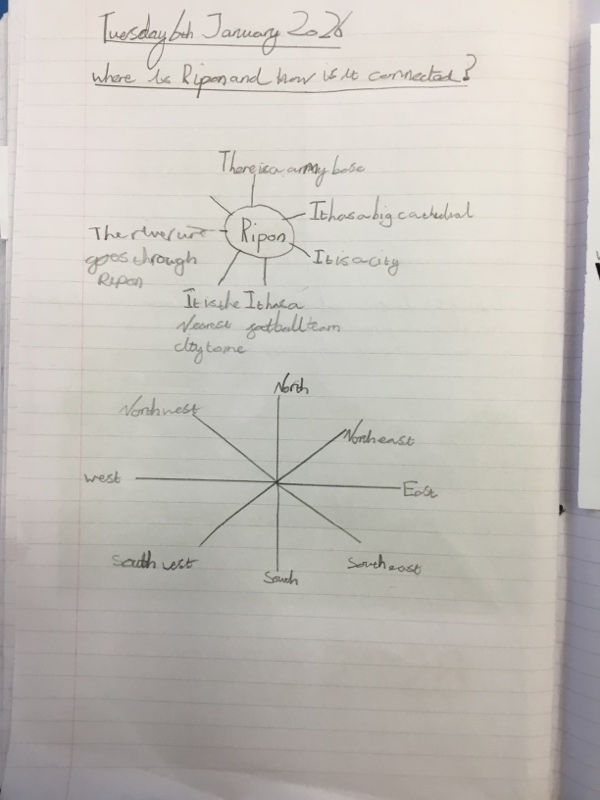 Tuesday 6th January 2026
where is Ripon and how is it connected?
There is a army base
It has a big cathedral
Ripon
The river ure
goes through
Ripon
It is a city
It is the
Nearest
city to me
It has a
football team
North
North west
North east
west
East
South west
South east
South